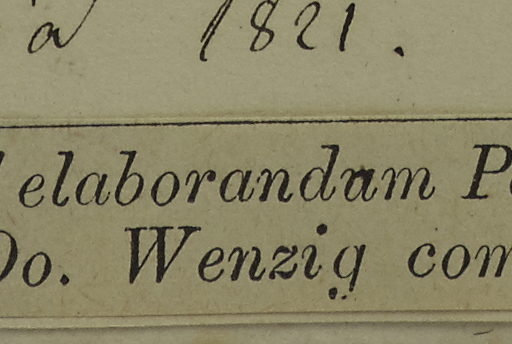 a 1821.
elaborandam
Do. Wenzig